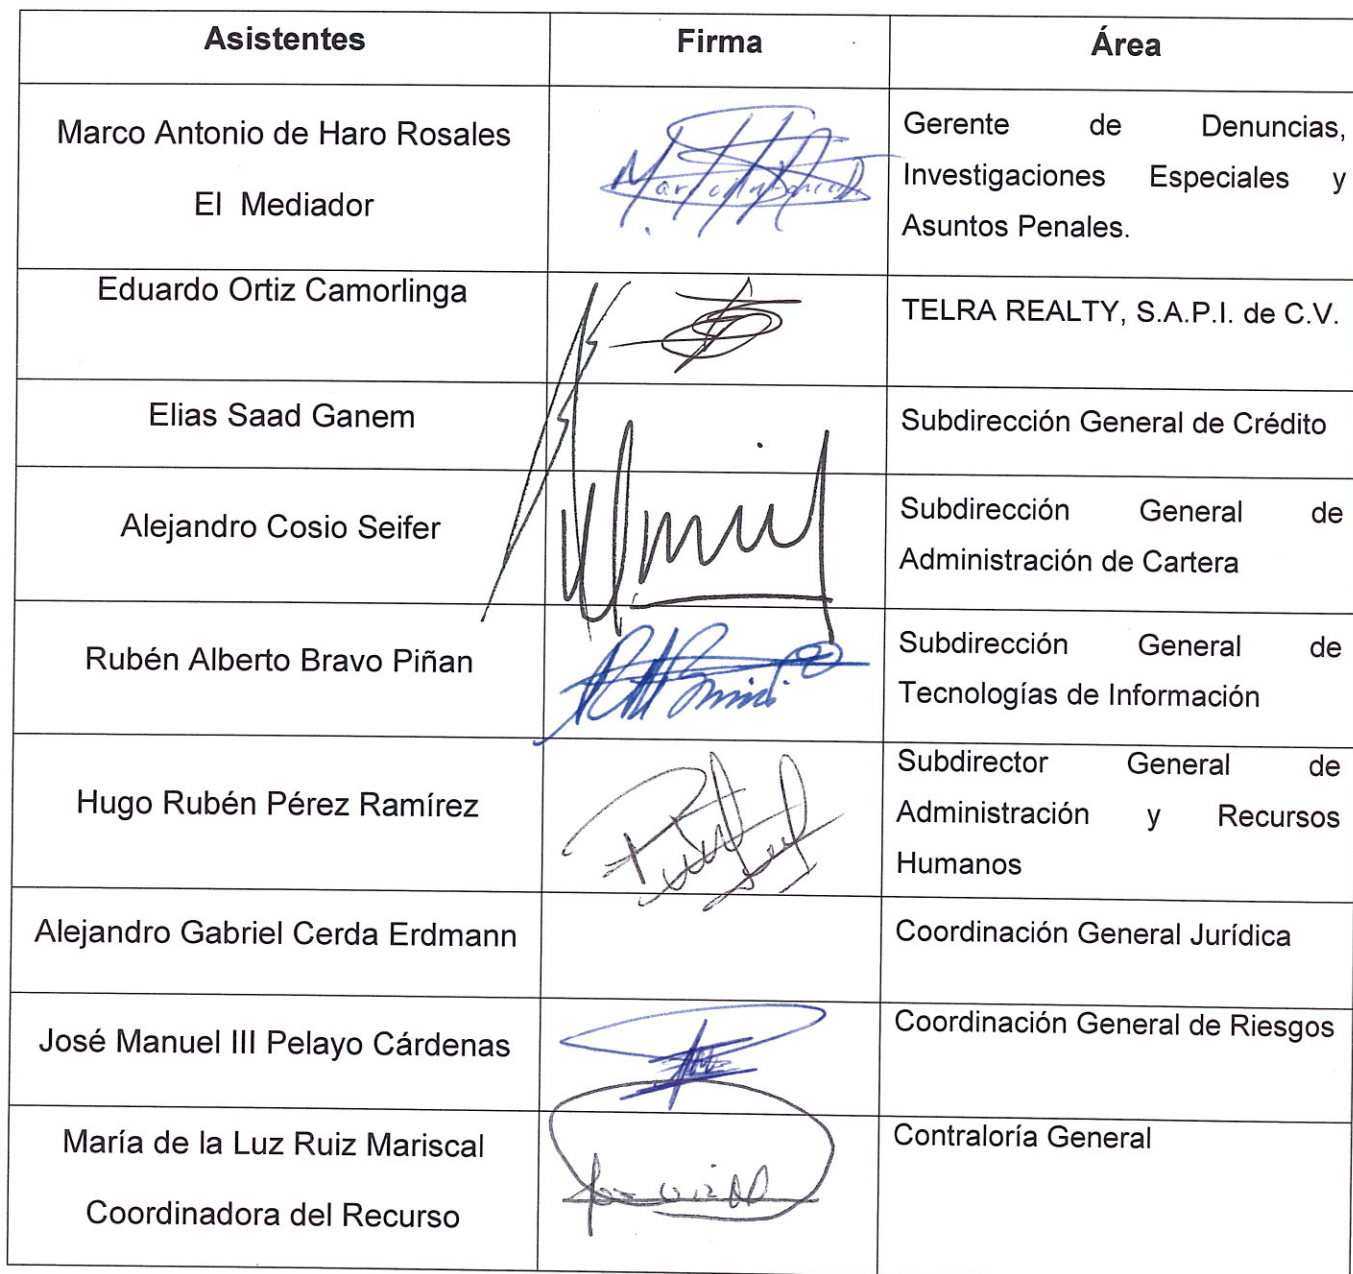 Asistentes Firma Área
Marco Antonio de Haro Rosales
El Mediador
Gerente de Denuncias,
Investigaciones Especiales y
Asuntos Penales.
Eduardo Ortiz Camorlinga
TELRA REALTY, S.A.P.I. de C.V.
Elias Saad Ganem
Subdirección General de Crédito
Alejandro Cosio Seifer
Subdirección General de
Administración de Cartera
Rubén Alberto Bravo Piñan
Subdirección General de
Tecnologías de Información
Hugo Rubén Pérez Ramírez
Subdirector General de
Administración y Recursos
Humanos
Alejandro Gabriel Cerda Erdmann
Coordinación General Jurídica
José Manuel III Pelayo Cárdenas
Coordinación General de Riesgos
María de la Luz Ruiz Mariscal
Coordinadora del Recurso
Contraloría General